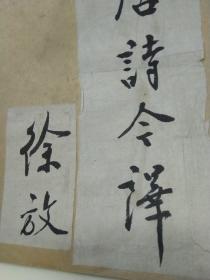 唐詩今譯
徐放